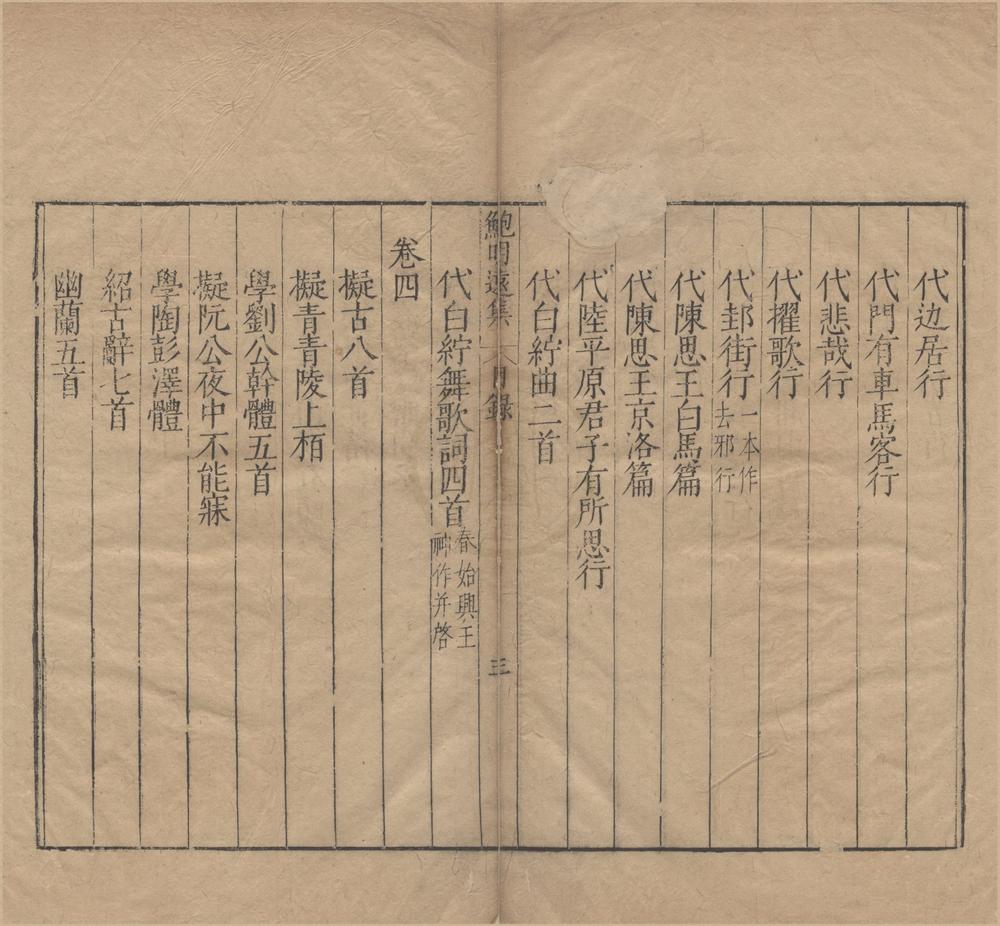 代边居行
代門有車馬客行
代悲哉行
代擢歌行
代邽街行一本作去邪行
代陳思王白馬篇
代陳思王京洛篇
代陸平原君子有所思行
代白紵曲二首
鮑明遠集 目錄 三
代白紵舞歌詞四首春始興王作并啓
卷四
擬古八首
擬青青陵上栢
學劉公幹體五首
擬阮公夜中不能寐
學陶彭澤體
紹古辭七首
幽蘭五首